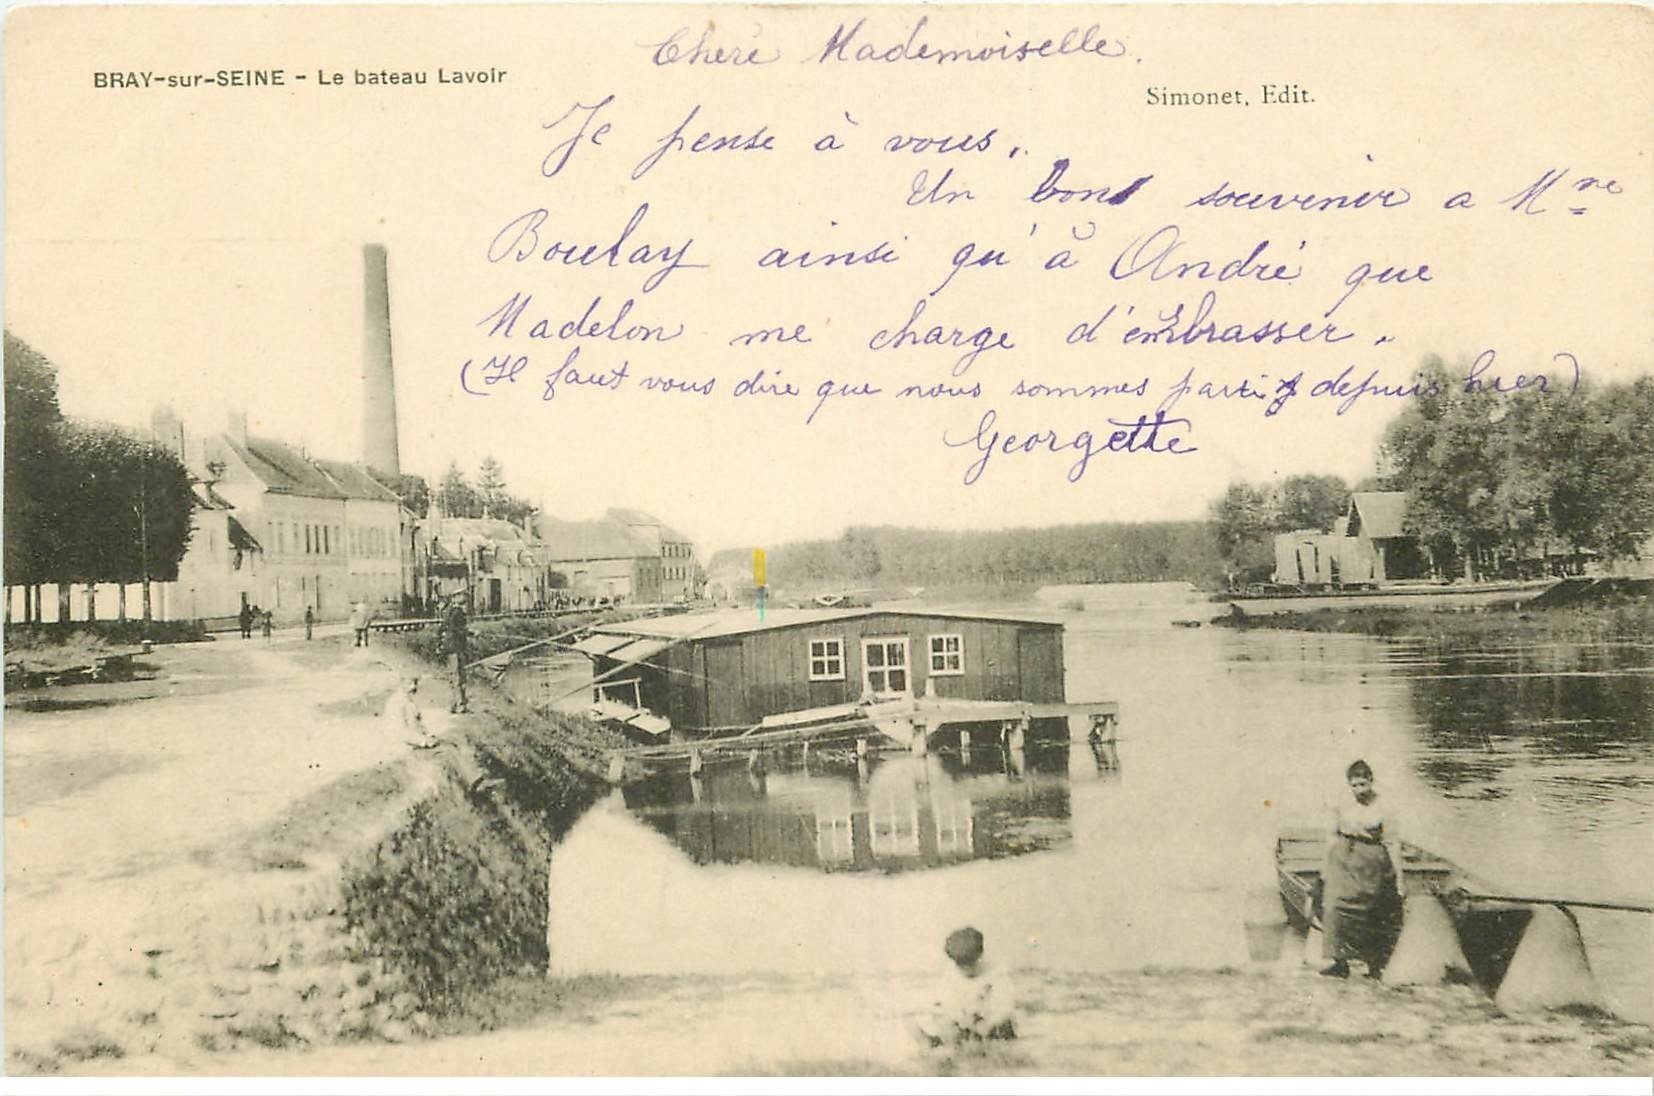 Chère Mademoiselle.
BRAY-sur-SEINE - Le bateau Lavoir
Simonet, Edit.
Je pense à vous.
Un bon souvenir a Mme
Boulay ainsi qu'à André que
Madelon me charge d'embrasser.
(Il faut vous dire que nous sommes partis depuis hier)
Georgette